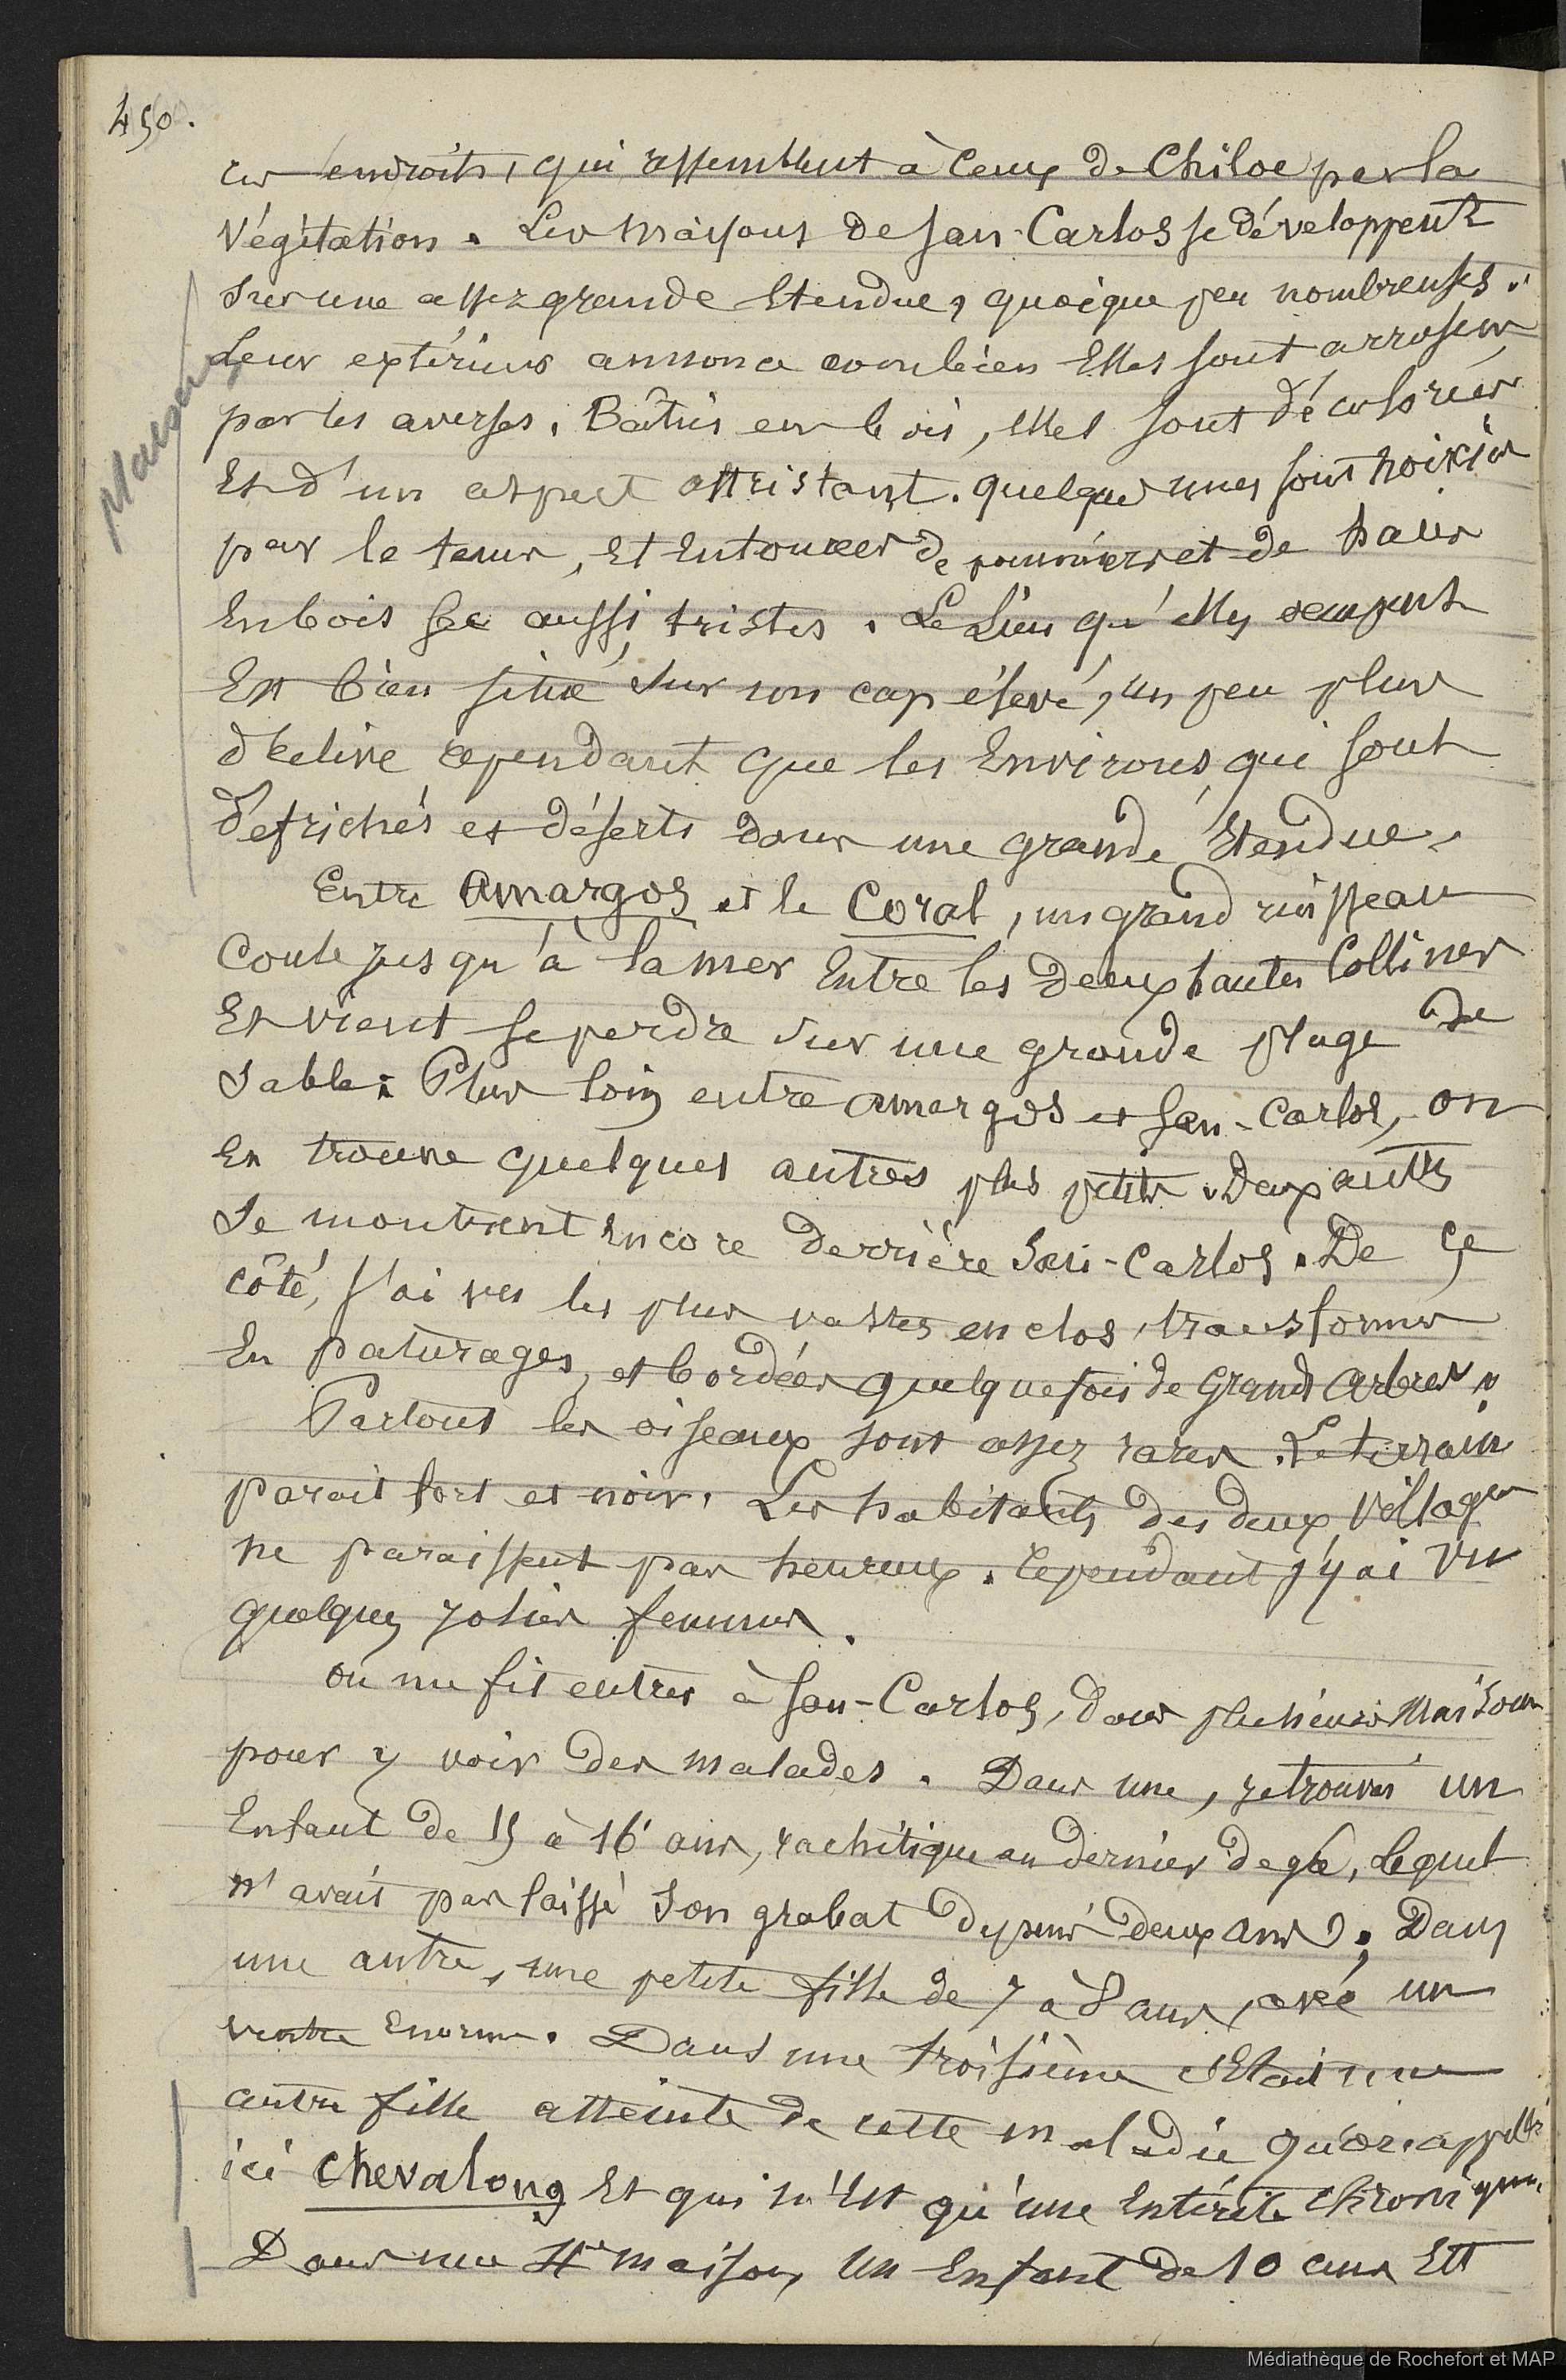 450.
ces endroits, qui ressemblent à ceux de Chiloe par la
Végétation. Les maisons de San-Carlos se développent
sur une assez grande Etendue, quoique peu nombreuses.
Leur extérieur annonce combien Elles sont arrosées
par les averses. Bâties en bois, elles sont décolorées
Et d'un aspect attristant. quelques unes sont noircies
par le tems, Et Entourées de pommiers et de haies
En bois sec aussi tristes. Le Lieu qu'elles occupent
Est bien situé sur un cap élevé, un peu plus
déclive cependant que les Environs, qui sont
défrichés et déserts dans une grande Etendue.
Maisons
Entre Amargos et le Coral, un grand ruisseau
Coule jusqu'à la mer Entre les deux hautes Collines
Et vient se perdre sur une grande plage de
Sable. Plus loin entre amargos et San-Carlos, on
En trouve quelques autres plus petits. Deux autres
Se montrent Encore derrière San-Carlos. De ce
côté, j'ai vu les plus vastes enclos, transformés
En paturages, et bordées quelquefois de Grands arbres.
Partout les oiseaux sont assez rares. Le terrain
parait fort et noir. Les habitants des deux Villages
ne paraissent pas heureux. Cependant j'y ai vu
quelques jolies femmes.
on me fit entrer à San-Carlos, dans plusieurs Maisons
pour y voir des malades. Dans une, je trouvai un
Enfant de 15 à 16 ans, rachitique au dernier degré, Lequel
n'avait pas laissé son grabat depuis deux ans. Dans
une autre, une petite fille de 7 à 8 ans, avec un
ventre Enorme. Dans une troisième Etait une
autre fille atteinte de cette maladie qu'on appelle
ici Chevalong Et qui n'Est qu'une Entérite chronique.
Dans une 4e maison, Un Enfant de 10 ans Est
Médiathèque de Rochefort et MAP